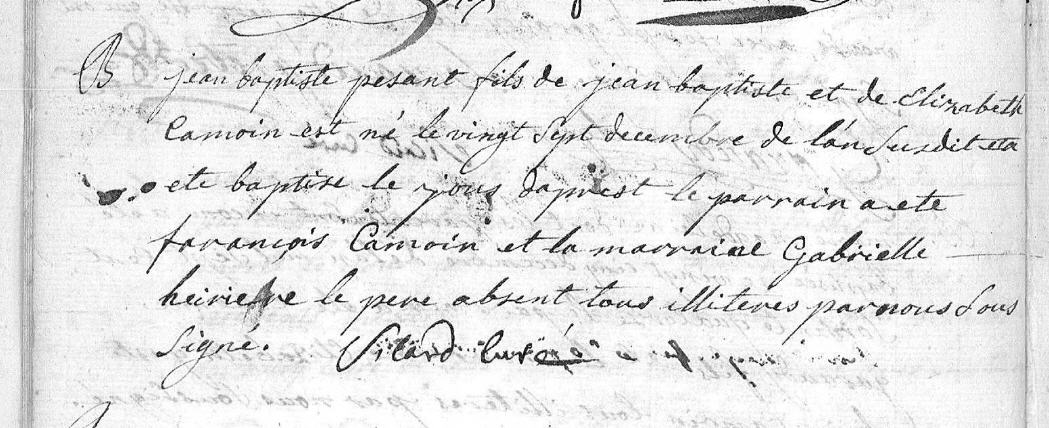 B jean baptiste pesant fils de jean baptiste et de Elizabeth
Camoin est né le vingt sept decembre de l'an susdit et a
ete baptise le jour daprest le parrain a ete
farançois Camoin et la marraine Gabrielle
le pere absent tous illiteres par nous sous
Signé. curé